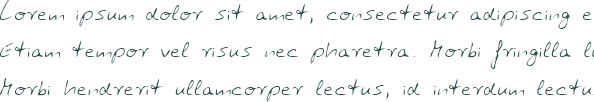 Lorem ipsum dolor sit amet, consectetur adipiscing e
Etiam tempor vel risus nec pharetra. Morbi fringilla l
Morbi hendrerit ullamcorper lectus, id interdum lectu